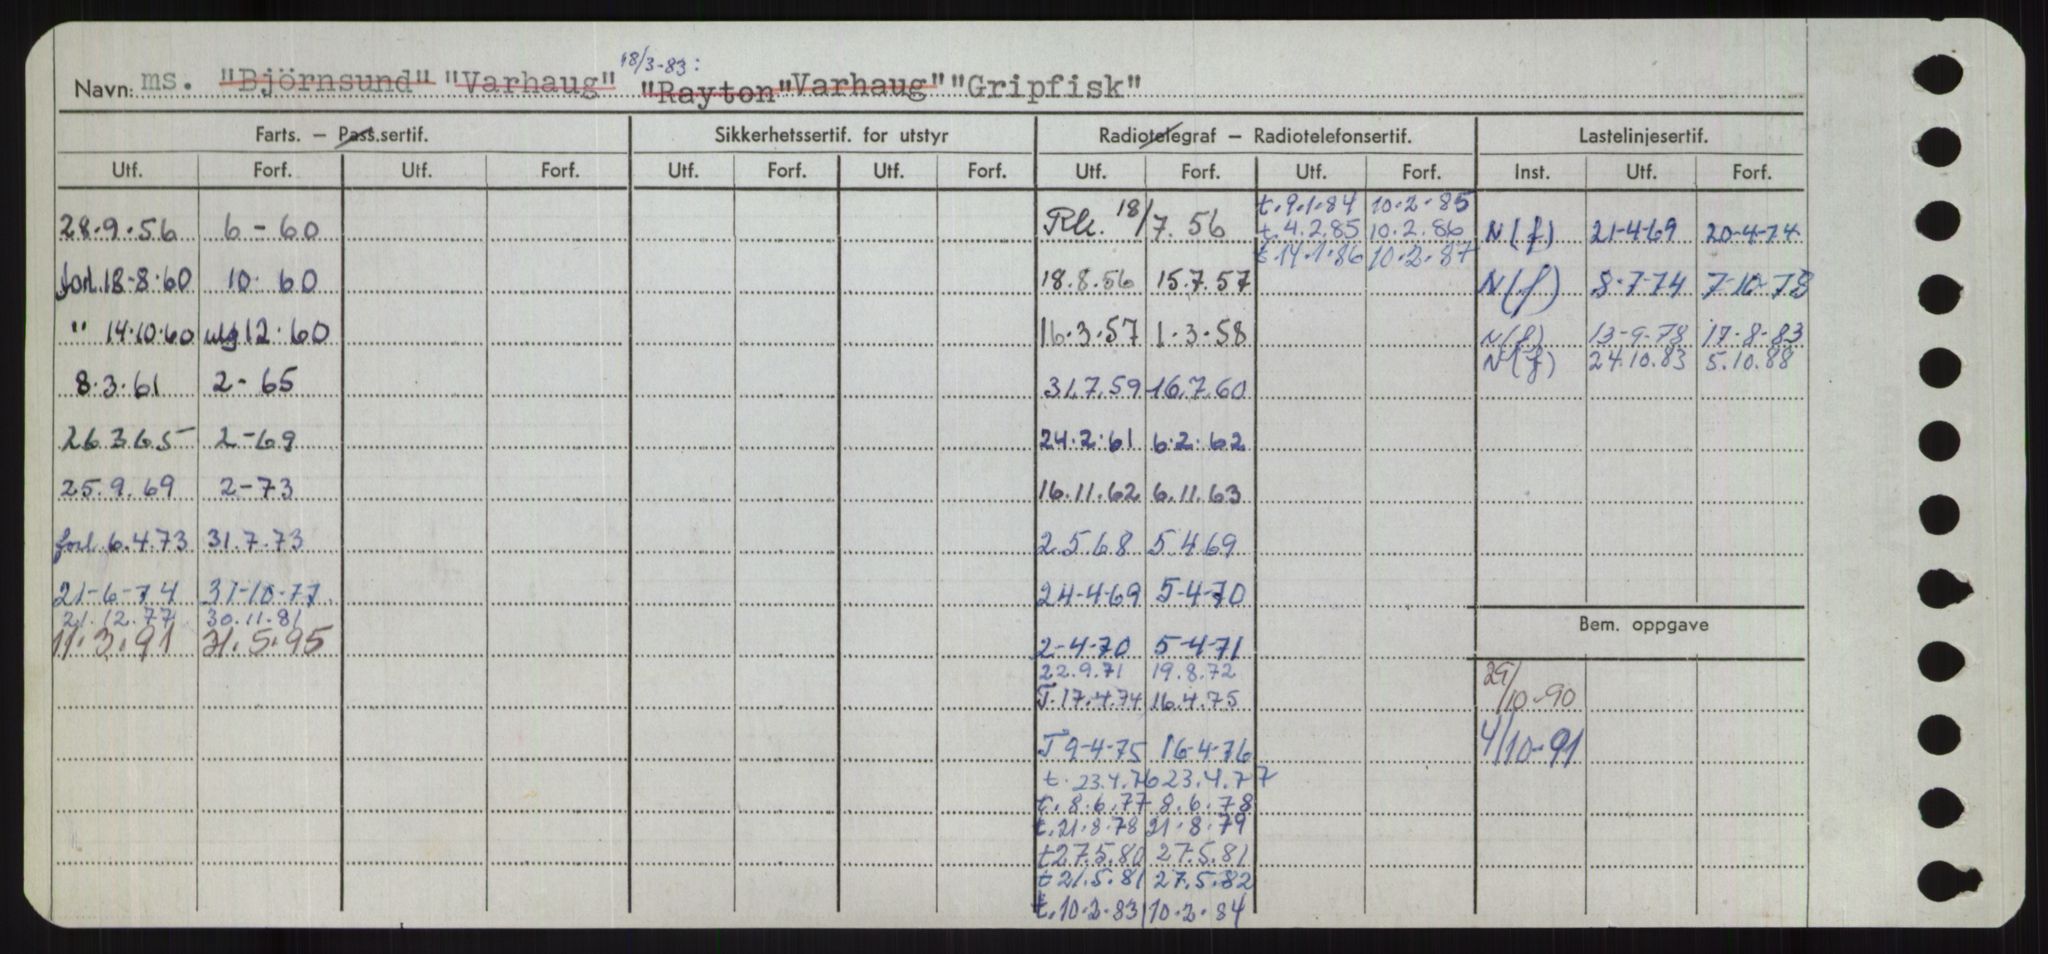 18/3-83:
Navn: ms. "Björnsund" "Varhaug" "Rayton" "Varhaug" "Gripfisk"
Farts. – Pass.sertif. Sikkerhetssertif. for utstyr Radiotelegraf – Radiotelefonsertif. Lastelinjesertif.
Utf. Forf. Utf. Forf. Utf. Forf. Utf. Forf. Utf. Forf. Utf. Forf. Inst. Utf. Forf.
t. 9.1.84 10.2.85
28.9.56 6-60 Rk. 18/7.56 t. 4.2.85 10.2.86 N(f) 21-4-69 20-4-74
t. 14.1.86 10.2.87
forl. 18-8-60 10.60 18.8.56 15.7.57 N(f) 8-7-74 7-10-78
" 14.10.60 utg 12.60 16.3.57 1.3.58 N(f) 13-9-78 17-8-83
N(f) 24.10.83 5.10.88
8.3.61 2-65 31.7.59 16.7.60
26.3.65 2-69 24.2.61 6.2.62
25.9.69 2-73 16.11.62 6.11.63
forl. 6.4.73 31.7.73 2.5.68 5.4.69
21-6-74 31-10-77. 24-4-69 5-4-70
21.12.77 30.11.81 Bem. oppgave
11.3.91 31.5.95 2-4-70 5-4-71
22.9.71 19.8.72 29/10-90
T. 17.4.74 16.4.75
T 9-4-75 16-4-76 4/10-91
t. 23.4.76 23.4.77
t. 8.6.77 8.6.78
t. 21.8.78 21.8.79
t 27.5.80 27.5.81
t 21.5.81 27.5.82
t. 10.2.83 10.2.84